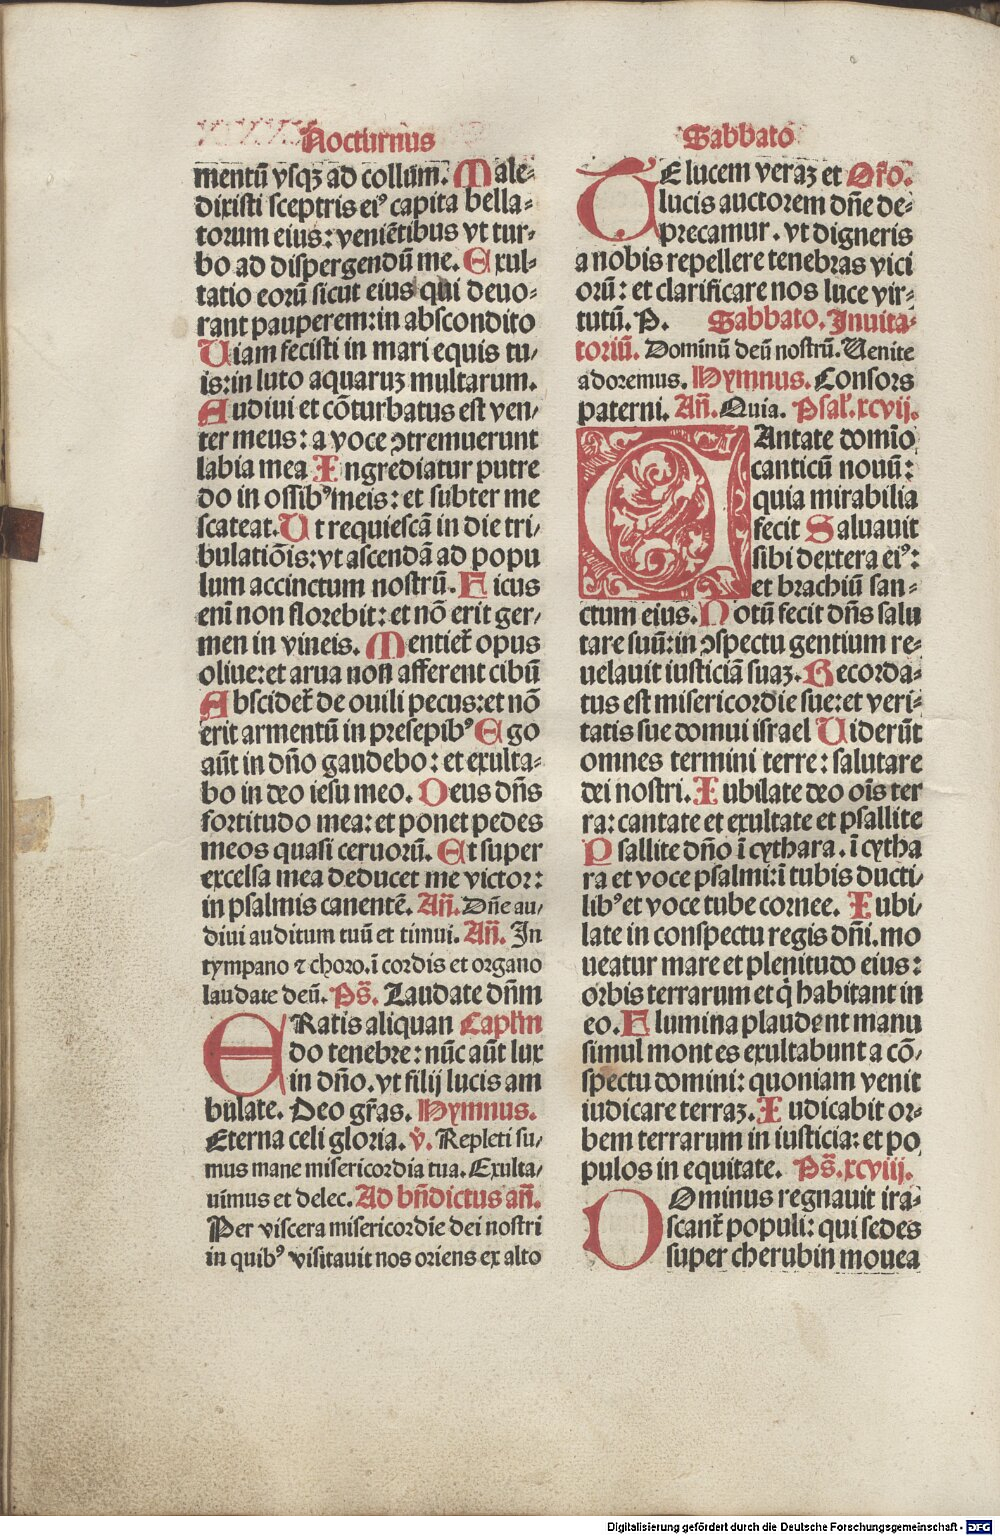 Nocturnus
mentū vsqꝫ ad collum. Male-
dixisti sceptris eiꝰ capita bella-
torum eius: veniētibus vt tur-
bo ad dispergendū me. Exul-
tatio eorū sicut eius qui deuo-
rant pauperem: in abscondito
Uiam fecisti in mari equis tu-
is: in luto aquaruꝫ multarum.
Audiui et cōturbatus est ven-
ter meus: a voce ↄtremuerunt
labia mea Ingrediatur putre
do in ossibꝰ meis: et subter me
scateat. Ut requiescā in die tri-
bulatiōis: vt ascendā ad popu
lum accinctum nostrū. Ficus
enī non florebit: et nō erit ger-
men in vineis. Mentiet᷑ opus
oliue: et arua non afferent cibū
Abscidet᷑ de ouili pecus: et nō
erit armentū in presepibꝰ Ego
aūt in dño gaudebo: et exulta-
bo in deo iesu meo. Deus dñs
fortitudo mea: et ponet pedes
meos quasi ceruorū. Et super
excelsa mea deducet me victor:
in psalmis canentē. Añ. Dñe au-
diui auditum tuū et timui. Añ. In
tympano ⁊ choro. ī cordis et organo
laudate deū. Ps̄. Laudate dñm
ERatis aliquan Capłm
do tenebre: nūc aūt lux
in dño. vt filij lucis am
bulate. Deo gr̄as. Hymnus.
Eterna celi gloria. v̄. Repleti su-
mus mane misericordia tua. Exulta-
uimus et delec. Ad bñdictus añ.
Per viscera misericordie dei nostri
in quibꝰ visitauit nos oriens ex alto
Sabbato
TE lucem veraꝫ et Or̄o.
lucis auctorem dñe de-
precamur. vt digneris
a nobis repellere tenebras vici
orū: et clarificare nos luce vir-
tutū. P. Sabbato. Inuita-
toriū. Dominū deū nostrū. Uenite
adoremus. Hymnus. Consors
paterni. Añ. Quia. Psal'. xcvij.
CAntate domīo
canticū nouū:
quia mirabilia
fecit Saluauit
sibi dextera eiꝰ:
et brachiū san-
ctum eius. Notū fecit dñs salu
tare suū: in ↄspectu gentium re-
uelauit iusticiā suaꝫ. Recorda-
tus est misericordie sue: et veri-
tatis sue domui israel Uiderūt
omnes termini terre: salutare
dei nostri. Iubilate deo oīs ter
ra: cantate et exultate et psallite
Psallite dño ī cythara. ī cytha
ra et voce psalmi: ī tubis ducti-
libꝰ et voce tube cornee. Iubi-
late in conspectu regis dñi. mo
ueatur mare et plenitudo eius:
orbis terrarum et q̇ habitant in
eo. Flumina plaudent manu
simul montes exultabunt a cō-
spectu domini: quoniam venit
iudicare terraꝫ. Iudicabit or-
bem terrarum in iusticia: et po
pulos in equitate. Ps̄. xcviij.
DOminus regnauit ira-
scant᷑ populi: qui sedes
super cherubin mouea
Digitalisierung gefördert durch die Deutsche Forschungsgemeinschaft - DFG